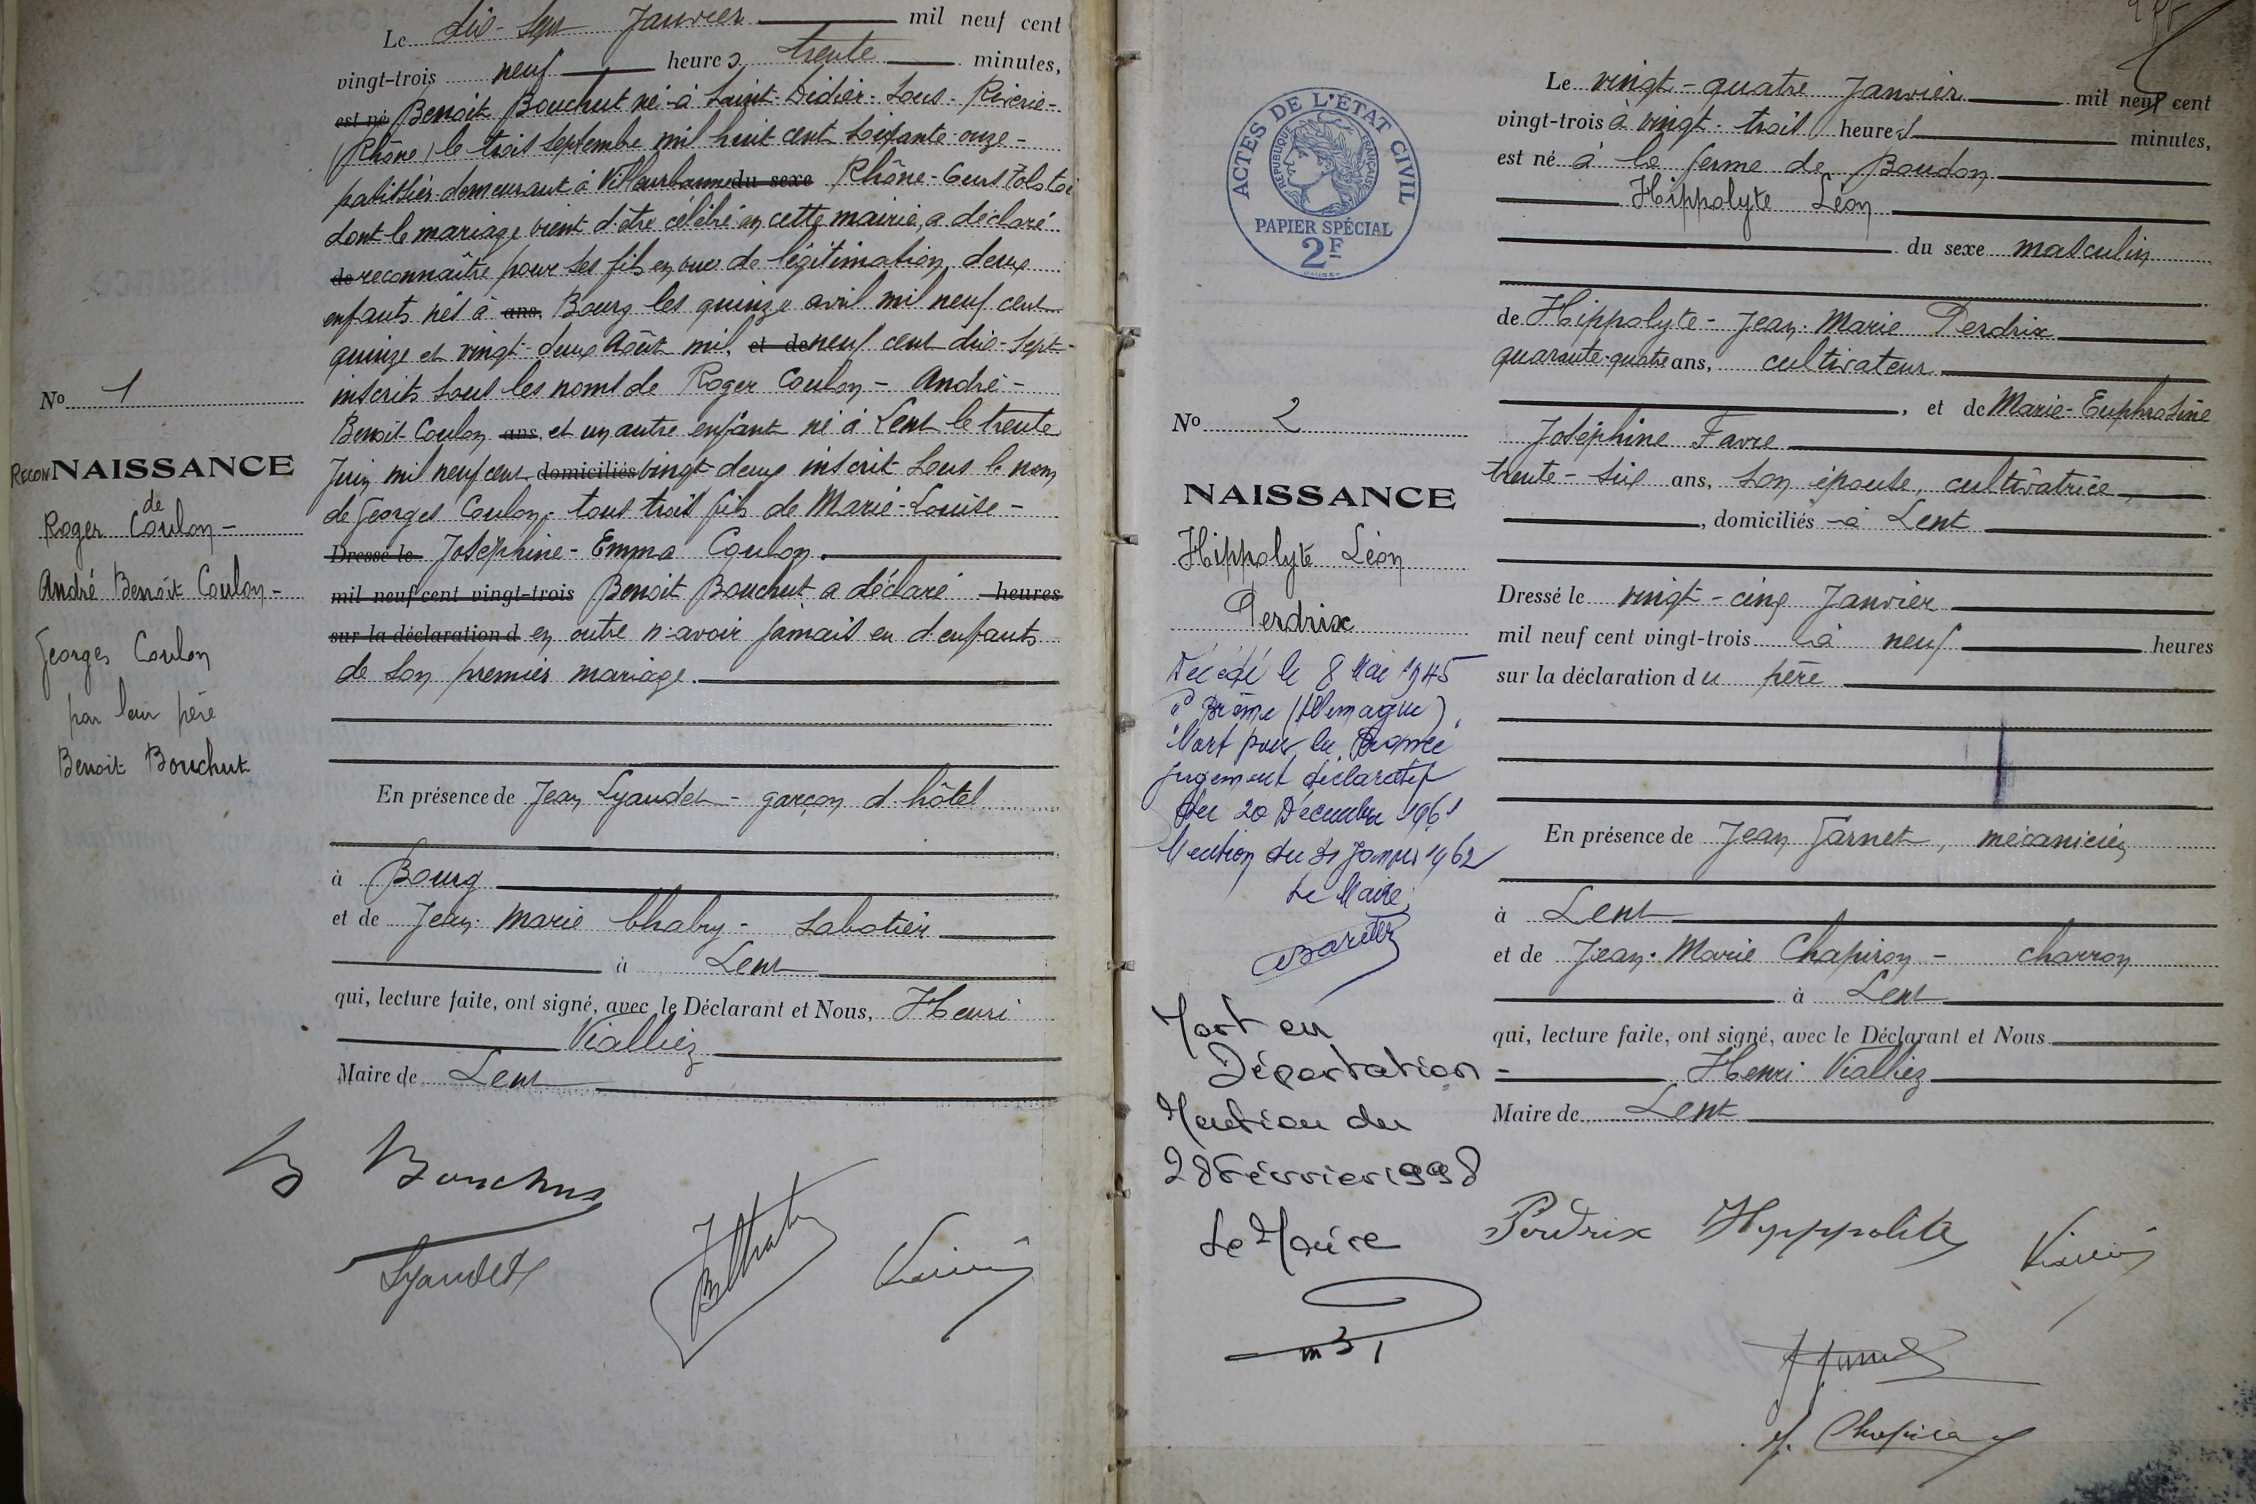 Le dix-sept Janvier mil neuf cent
vingt-trois neuf heures trente minutes,
est né Benoit Bouchut né à Saint-Didier-sous-Riverie-
(Rhône) le trois septembre mil huit cent soixante-onze-
pâtissier demeurant à Villeurbanne du sexe Rhône-Cours Tolstoi
dont le mariage vient d'être célébré en cette mairie, a déclaré
de reconnaître pour ses fils en vue de légitimation, deux
enfants nés à ans, Bourg les quinze avril mil neuf cent
quinze et vingt-deux Août mil, et de neuf cent dix-sept-
inscrits sous les noms de Roger Coulon - André-
Benoit Coulon ans, et un autre enfant né à Lent le trente
Juin mil neuf cent domiciliés vingt-deux inscrit sous le nom
de Georges Coulon, tous trois fils de Marie-Louise-
Dressé le Joséphine-Emma Coulon.
mil neuf cent vingt-trois Benoit Bouchut a déclaré heures
sur la déclaration d en outre n'avoir jamais eu d'enfants
de son premier mariage.
En présence de Jean Lyaudet - garçon d'hôtel
à Bourg
et de Jean-Marie Chabry - sabotier
à Lent
qui, lecture faite, ont signé, avec le Déclarant et Nous, Henri
Vialliez
Maire de Lent
No 1
RECON NAISSANCE
de
Roger Coulon-
André Benoît Coulon-
Georges Coulon
par leur père
Benoit Bouchut
B Bouchut
Lyaudet
ACTES DE L'ÉTAT CIVIL
RÉPUBLIQUE FRANÇAISE
PAPIER SPÉCIAL
2F
No 2
NAISSANCE
Hippolyte Léon
Perdrix
Décédé le 8 Mai 1945
à Brême (Allemagne)
"Mort pour la France"
Jugement déclaratif
du 20 Décembre 1961
Mention du 31 Janvier 1962
Le Maire,
Mort en
Déportation
Mention du
28 Février 1998
Le Maire
Le vingt-quatre Janvier mil neuf cent
vingt-trois à vingt-trois heures minutes,
est né à la ferme de Boudon
Hippolyte Léon
du sexe masculin
de Hippolyte-Jean-Marie Perdrix
quarante-quatre ans, cultivateur
, et de Marie-Euphrosine
Joséphine Favre
trente-six ans, son épouse, cultivatrice,
, domiciliés à Lent
Dressé le vingt-cinq Janvier
mil neuf cent vingt-trois à neuf heures
sur la déclaration du père
En présence de Jean Garnet, mécanicien
à Lent
et de Jean-Marie Chapiron - charron
à Lent
qui, lecture faite, ont signé, avec le Déclarant et Nous
Henri Vialliez
Maire de Lent
Perdrix Hyppolite